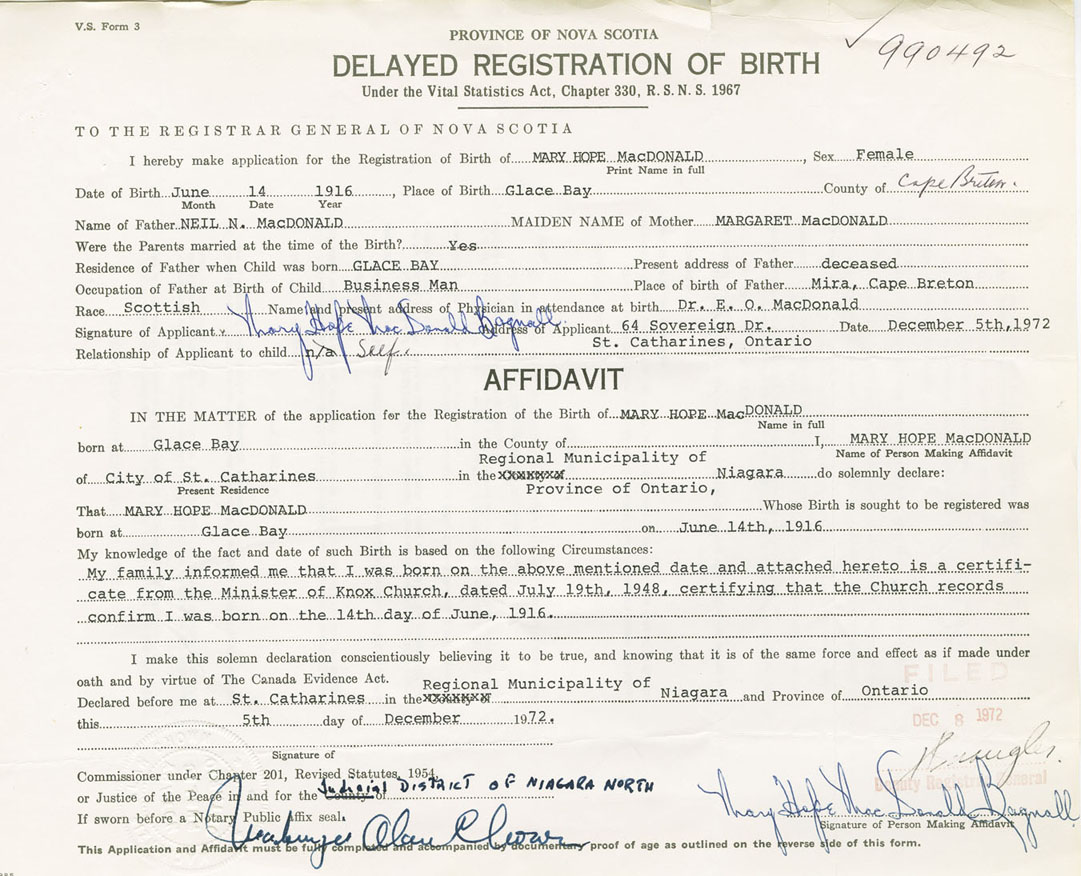 V.S. Form 3
990492
PROVINCE OF NOVA SCOTIA
DELAYED REGISTRATION OF BIRTH
Under the Vital Statistics Act, Chapter 330, R.S.N.S. 1967
TO THE REGISTRAR GENERAL OF NOVA SCOTIA
I hereby make application for the Registration of Birth of MARY HOPE MacDONALD, Sex Female
Print Name in full
Date of Birth June 14 1916, Place of Birth Glace Bay County of Cape Breton.
Month Date Year
Name of Father NEIL N. MacDONALD MAIDEN NAME of Mother MARGARET MacDONALD
Were the Parents married at the time of the Birth? Yes
Residence of Father when Child was born GLACE BAY Present address of Father deceased
Occupation of Father at Birth of Child Business Man Place of birth of Father Mira, Cape Breton
Race Scottish Name and present address of Physician in attendance at birth Dr. E. O. MacDonald
Signature of Applicant Mary Hope MacDonald Bagnall Address of Applicant 64 Sovereign Dr. Date December 5th, 1972
St. Catharines, Ontario
Relationship of Applicant to child n/a Self.
AFFIDAVIT
IN THE MATTER of the application for the Registration of the Birth of MARY HOPE MacDONALD
Name in full
born at Glace Bay in the County of I, MARY HOPE MacDONALD
Name of Person Making Affidavit
Regional Municipality of
of City of St. Catharines in the Niagara do solemnly declare:
Present Residence
Province of Ontario,
That MARY HOPE MacDONALD Whose Birth is sought to be registered was
born at Glace Bay on June 14th, 1916
My knowledge of the fact and date of such Birth is based on the following Circumstances:
My family informed me that I was born on the above mentioned date and attached hereto is a certifi-
cate from the Minister of Knox Church, dated July 19th, 1948, certifying that the Church records
confirm I was born on the 14th day of June, 1916.
I make this solemn declaration conscientiously believing it to be true, and knowing that it is of the same force and effect as if made under
oath and by virtue of The Canada Evidence Act.
FILED
Regional Municipality of
Declared before me at St. Catharines in the County of Niagara and Province of Ontario
this 5th day of December 1972.
DEC 8 1972
Signature of
Commissioner under Chapter 201, Revised Statutes, 1954,
Deputy Registrar General
or Justice of the Peace in and for the County of Judicial DISTRICT OF NIAGARA NORTH
If sworn before a Notary Public affix seal.
Mary Hope MacDonald Bagnall
Signature of Person Making Affidavit
This Application and Affidavit must be fully completed and accompanied by documentary proof of age as outlined on the reverse side of this form.